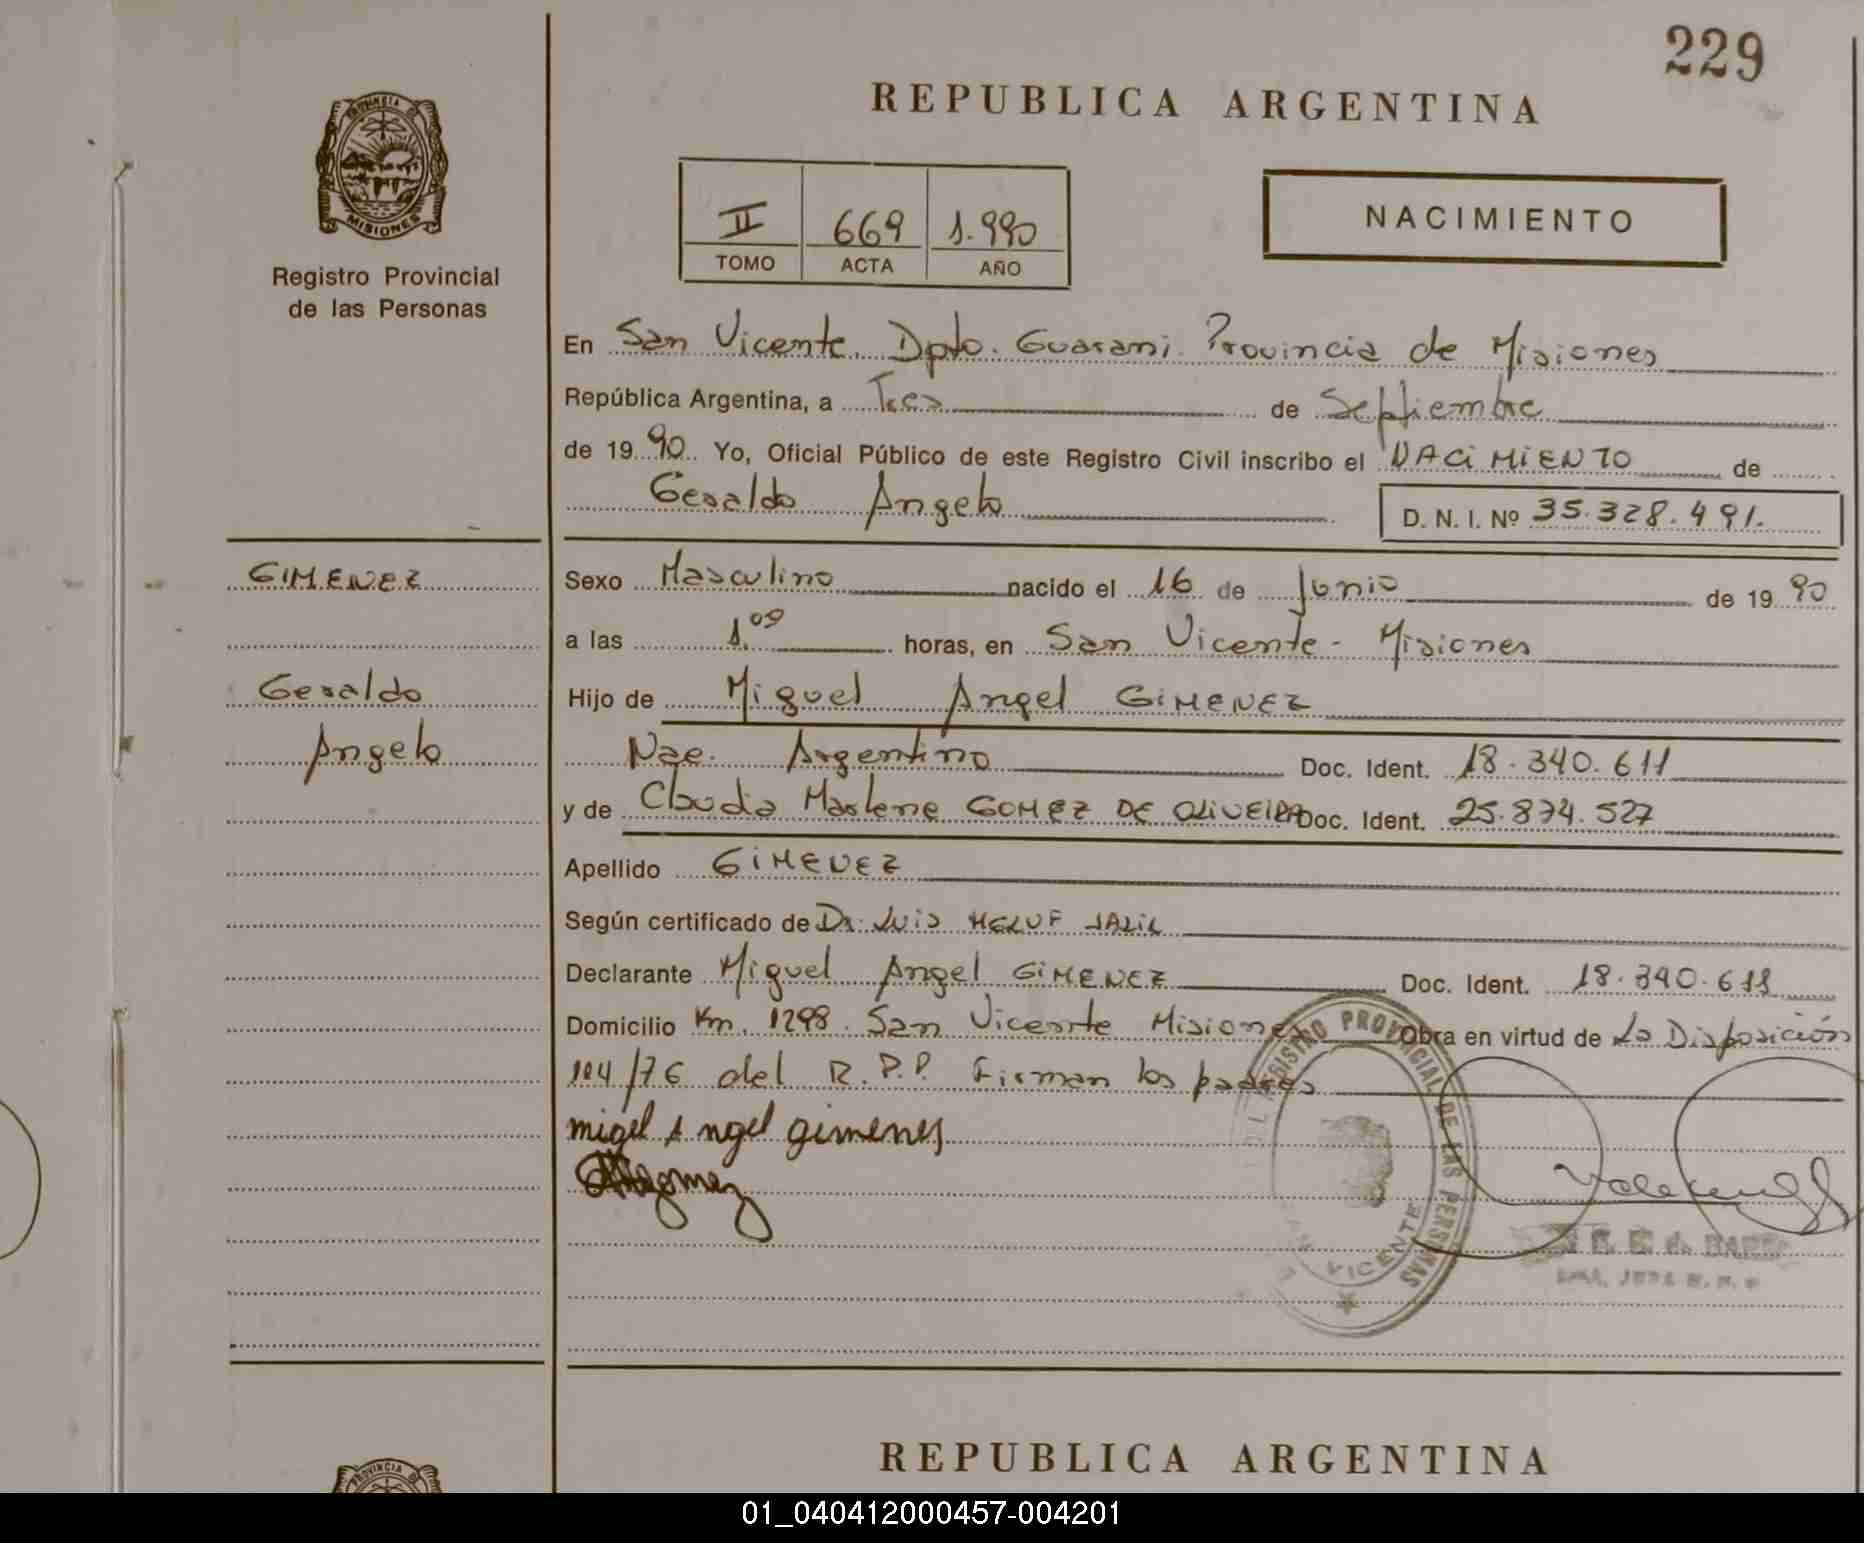 229
REPUBLICA ARGENTINA
PROVINCIA DE
MISIONES
Registro Provincial
de las Personas
II 669 1.990
TOMO ACTA AÑO
NACIMIENTO
En San Vicente. Dpto. Guarani. Provincia de Misiones
República Argentina, a Tres de Septiembre
de 1990 Yo, Oficial Público de este Registro Civil inscribo el NACiMiENTO de
Geraldo Angelo D. N. I. Nº 35.328.491.
GIMENEZ
Geraldo
Angelo
Sexo Masculino nacido el 16 de Junio de 1990
a las 1.09 horas, en San Vicente - Misiones
Hijo de Miguel Angel GiMENEZ
Nac. Argentino Doc. Ident. 18.340.611
y de Claudia Marlene GOMEZ DE OLiVEIRA Doc. Ident. 25.874.527
Apellido GiMENEZ
Según certificado de Dr. Luis HELUF JALIL
Declarante Miguel Angel GiMENEZ Doc. Ident. 18.340.611
Domicilio Km. 1298. San Vicente Misiones Obra en virtud de La Disposición
104/76 del R.P.P. Firman los padres
migel Angel gimenes
gomez
REGISTRO PROVINCIAL DE LAS PERSONAS
SAN VICENTE
REPUBLICA ARGENTINA
PROVINCIA D
01_040412000457-004201